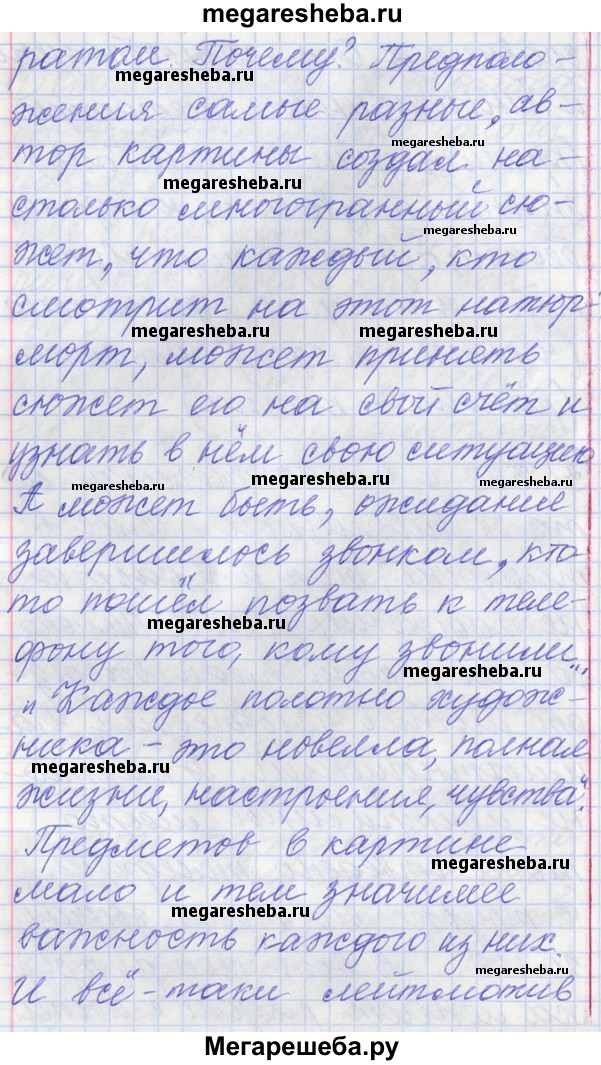 megaresheba.ru
ратом. Почему? Предполо-
megaresheba.ru
жения самые разные, ав-
megaresheba.ru
тор картины создал на-
megaresheba.ru
столько многогранный сю-
megaresheba.ru
жет, что каждый, кто
смотрит на этот натюр-
megaresheba.ru megaresheba.ru
морт, может принять
сюжет его на свой счёт и
узнать в нём свою ситуацию
megaresheba.ru megaresheba.ru
А может быть, ожидание
завершилось звонком, кто-
то пошёл позвать к теле-
megaresheba.ru
фону того, кому звонили...
megaresheba.ru
"Каждое полотно худож-
ника - это новелла, полная
megaresheba.ru
жизни, настроения, чувства".
Предметов в картине
megaresheba.ru
мало и тем значимее
megaresheba.ru
важность каждого из них.
megaresheba.ru
И всё-таки лейтмотив
Мегарешеба.ру